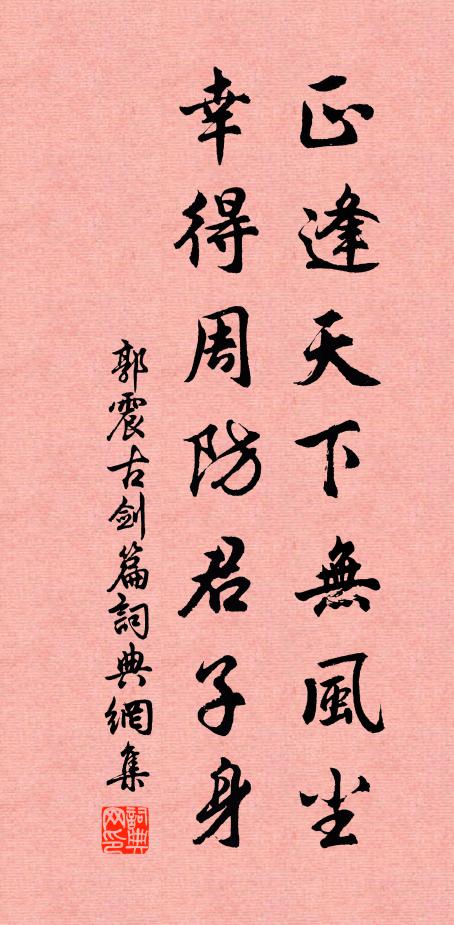 正逢天下無風尘
幸得周防君子身
郭震古劍篇詞典網集
詞典网印